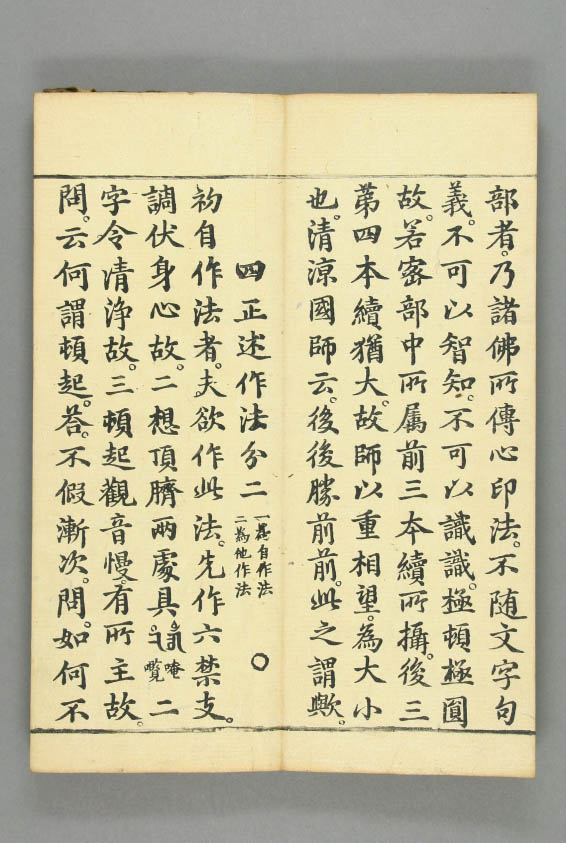 部者。乃諸佛所傳心印法。不随文字句
義。不可以智知。不可以識識。極頓極圓
故。若密部中所属前三本續所攝。後三
苐四本續猶大。故師以重相望。為大小
也。清涼國師云。後後勝前前。此之謂歟。
四正述作法分二 一為自作法 二為他作法 ○
初自作法者。夫欲作此法。先作六禁支。
調伏身心故。二想頂臍兩處具 唵 覽 二
字令清浄故。三頓起觀音慢。有所主故。
問。云何謂頓起。荅。不假漸次。問。如何不